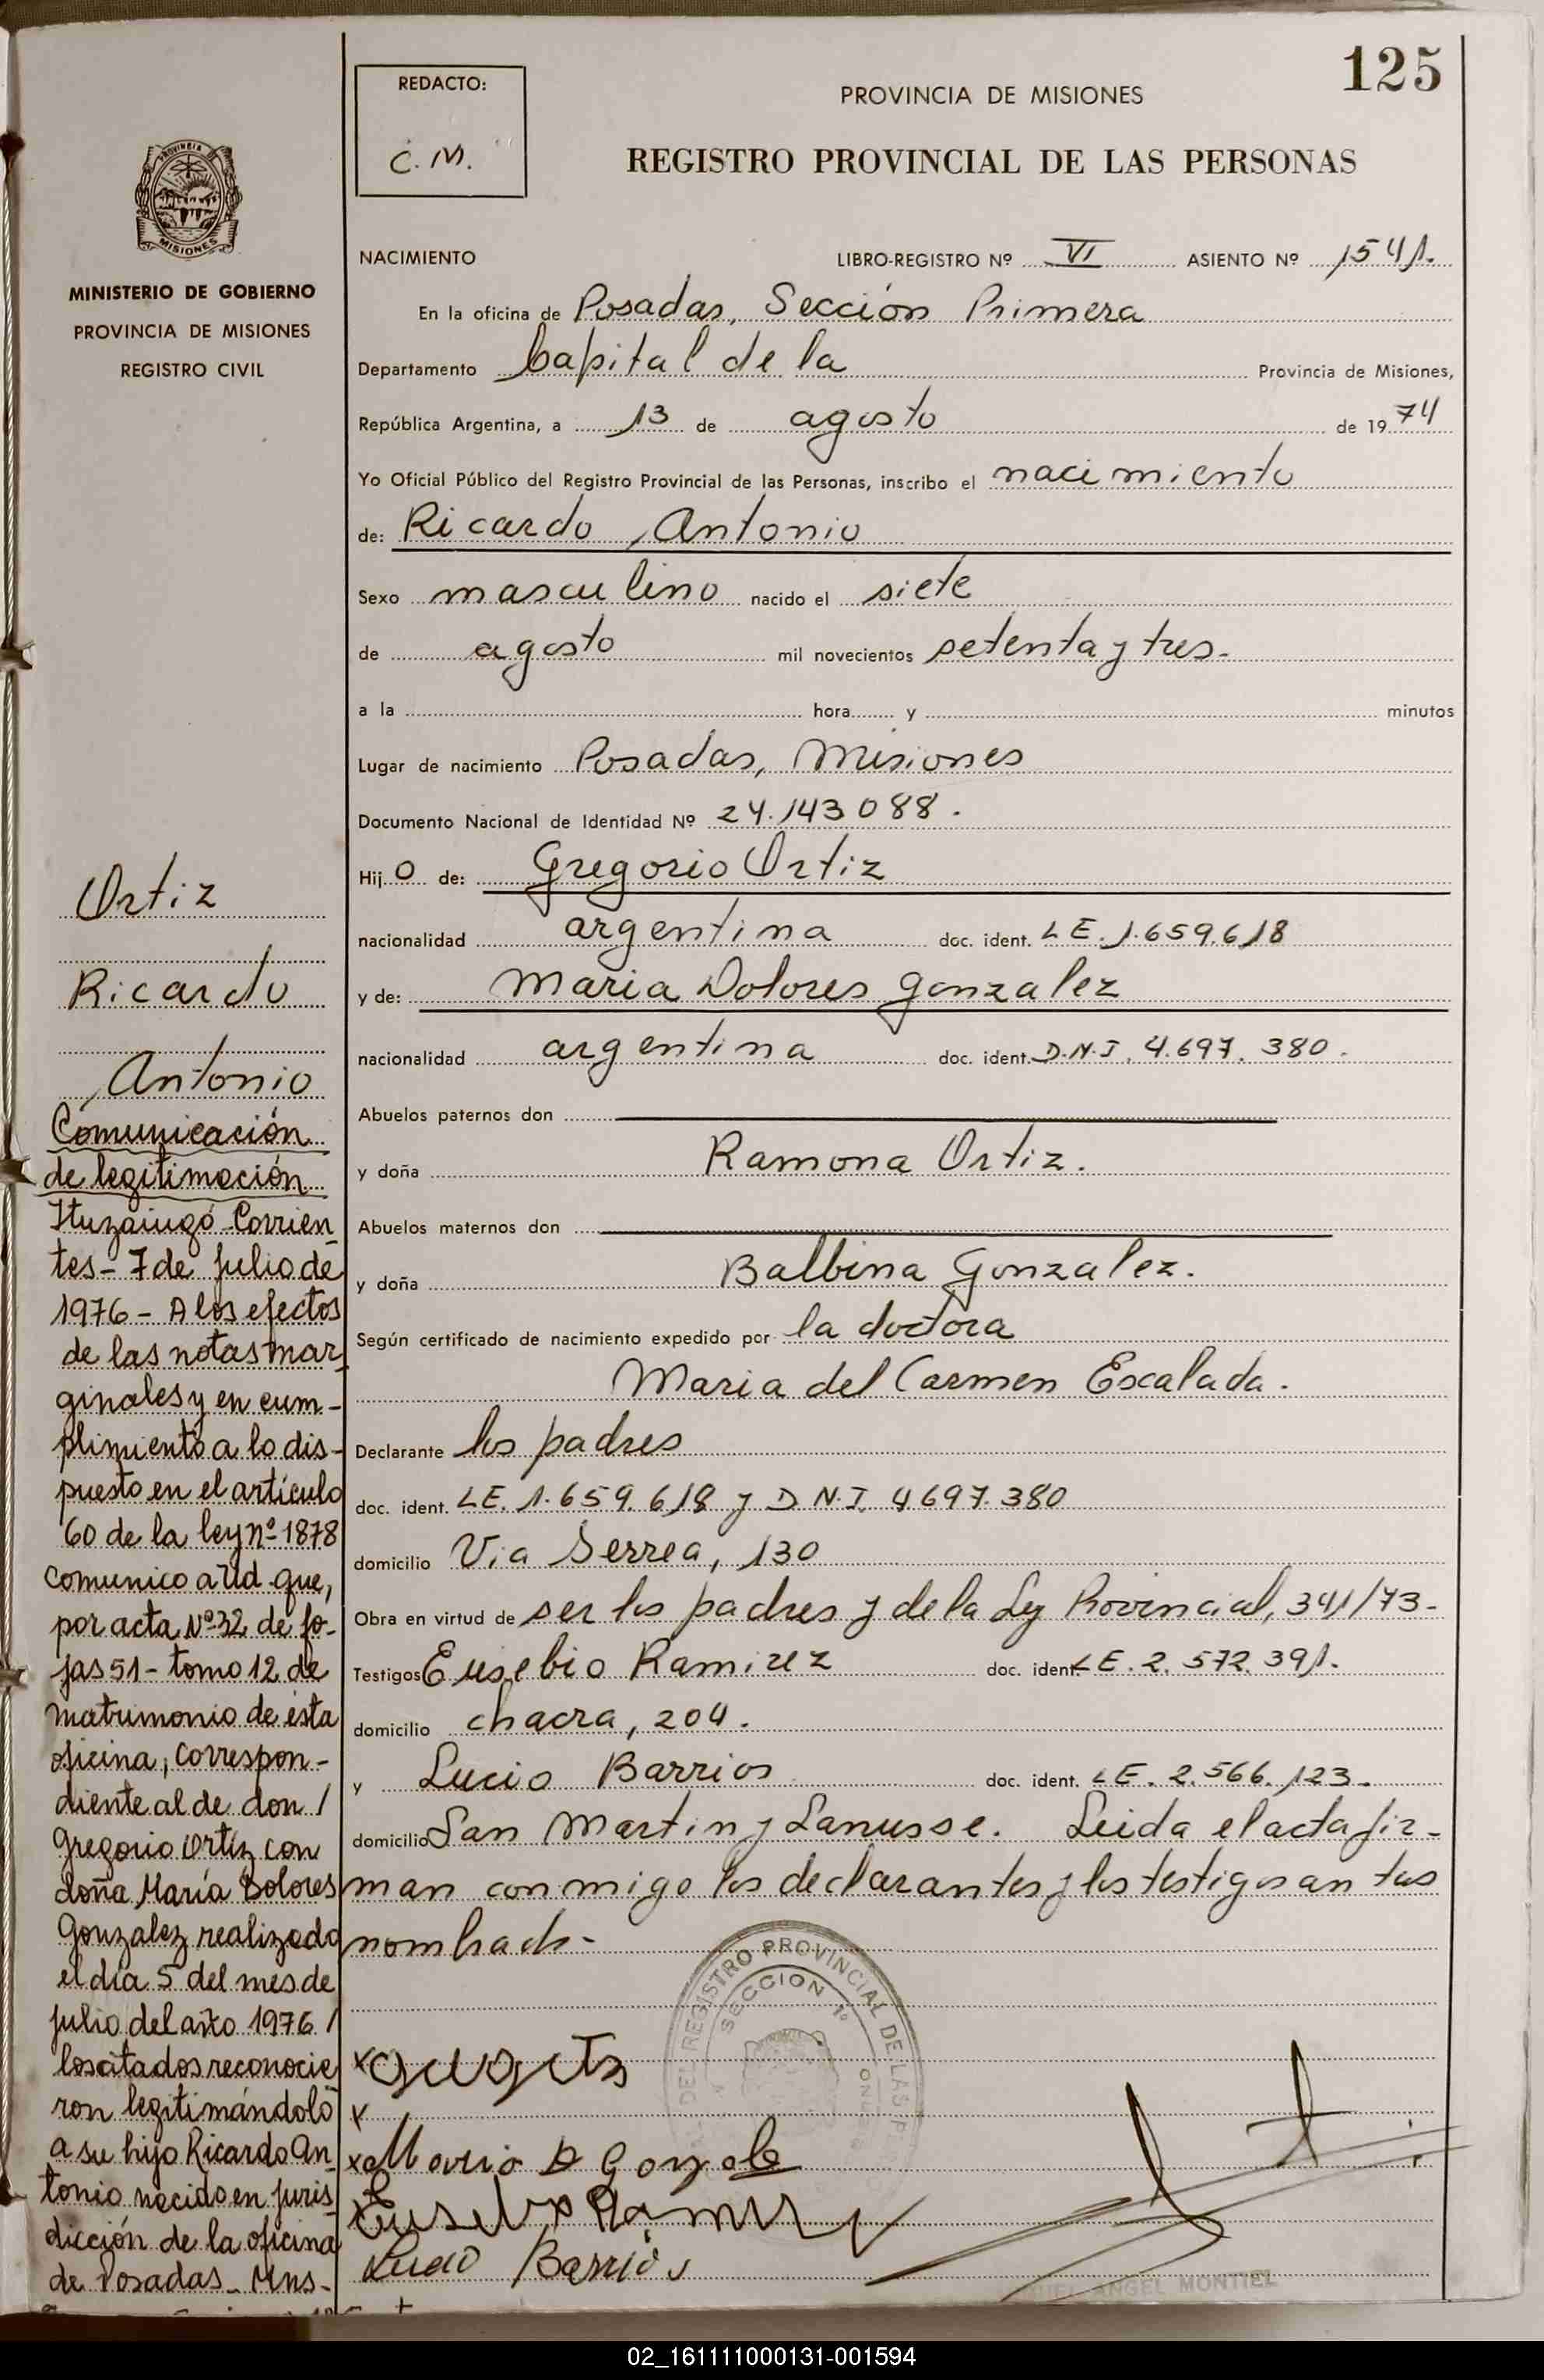 125
REDACTO:
C. M.
PROVINCIA DE MISIONES
REGISTRO PROVINCIAL DE LAS PERSONAS
PROVINCIA
MISIONES
MINISTERIO DE GOBIERNO
PROVINCIA DE MISIONES
REGISTRO CIVIL
NACIMIENTO LIBRO-REGISTRO Nº VI ASIENTO Nº 1541.
En la oficina de Posadas, Sección Primera
Departamento Capital de la Provincia de Misiones,
República Argentina, a 13 de agosto de 1974
Yo Oficial Público del Registro Provincial de las Personas, inscribo el nacimiento
de: Ricardo Antonio
Sexo masculino nacido el siete
de agosto mil novecientos setenta y tres-
a la hora y minutos
Lugar de nacimiento Posadas, Misiones
Documento Nacional de Identidad Nº 24.143088.
Hijo de: Gregorio Ortiz
nacionalidad argentina doc. ident. LE. 1.659.618
y de: Maria Dolores gonzalez
nacionalidad argentina doc. ident. D.N.I. 4.697.380.
Abuelos paternos don
y doña Ramona Ortiz.
Abuelos maternos don
y doña Balbina Gonzalez.
Según certificado de nacimiento expedido por la doctora
Maria del Carmen Escalada.
Declarante los padres
doc. ident. LE. 1.659.618 y D.N.I. 4697.380
domicilio Via Serrea, 130
Obra en virtud de ser los padres y de la Ley Provincial, 341/73-
Testigos Eusebio Ramirez doc. ident. LE. 2.572.391.
domicilio chacra, 204.
y Lucio Barrios doc. ident. LE. 2.566.123.
domicilio San Martin y Lanusse. Leida el acta fir-
man conmigo los declarantes y los testigos antes
nombrads-
Ortiz
Ricardo
Antonio
Comunicación
de legitimación
Ituzaingó-Corrien
tes- 7 de julio de
1976- A los efectos
de las notas mar
ginales y en cum-
plimiento a lo dis-
puesto en el artículo
60 de la ley nº 1878
comunico a Ud que,
por acta Nº32 de fo-
jas 51- tomo 12 de
matrimonio de ésta
oficina, correspon-
diente al de don /
Gregorio Ortíz con
doña María Dolores
Gonzalez realizado
el día 5 del mes de
julio del año 1976 /
los citados reconocie
ron legitimándolo
a su hijo Ricardo An
tonio nacido en juris
dicción de la oficina
de Posadas- Mns-
REGISTRO PROVINCIAL DE LAS
SECCION 1º
x
x
x Maria D Gonzale
x Eusebio Ramirez
Lucio Barrios
ANGEL MONTIEL
02_161111000131-001594